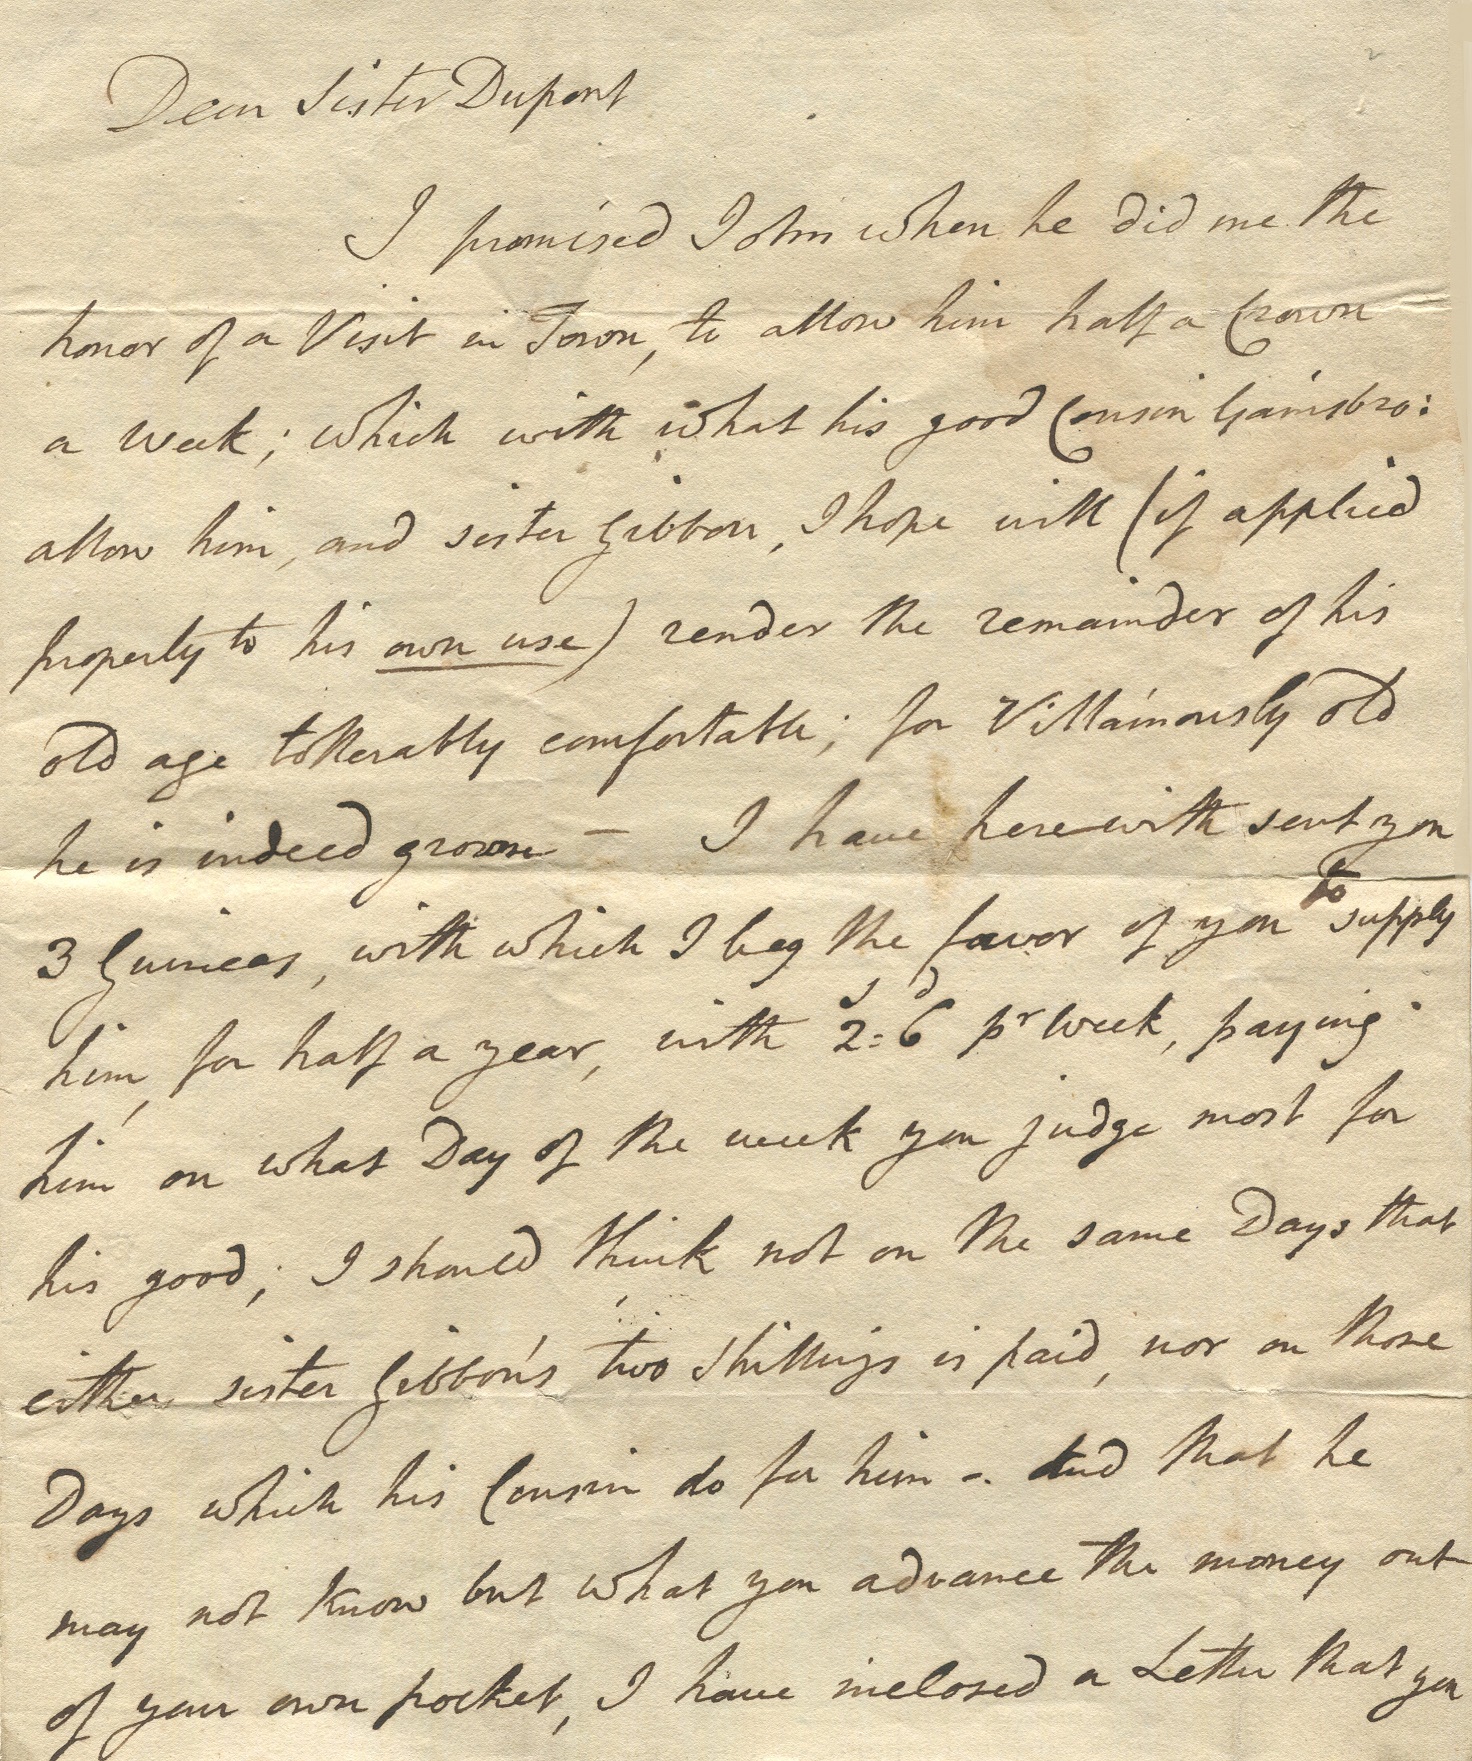 Dear Sister Dupont
I promised John when he did me the
honor of a Visit in Town, to allow him half a Crown
a week; which with what his good Cousin Gainsbro:
allow him, and sister Gibbon, I hope will (if applied
properly to his own use) render the remainder of his
old age tollerably comfortable; for Villainously old
he is indeed grown — I have herewith sent you
3 Guineas, with which I beg the favor of you to supply
him, for half a year, with 2s:6d pr week, paying
him on what Day of the week you judge most for
his good; I should think not on the same Days that
either sister Gibbon's two Shillings is paid, nor on those
Days which his Cousin do for him -. And that he
may not know but what you advance the money out
of your own pocket, I have inclosed a Letter that you